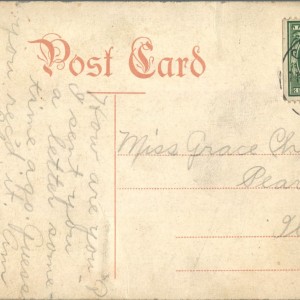 Post Card
How are you?
I sent you
a letter some
time ago. Guess
you rec'd it. Am
Miss Grace Ch
Pear